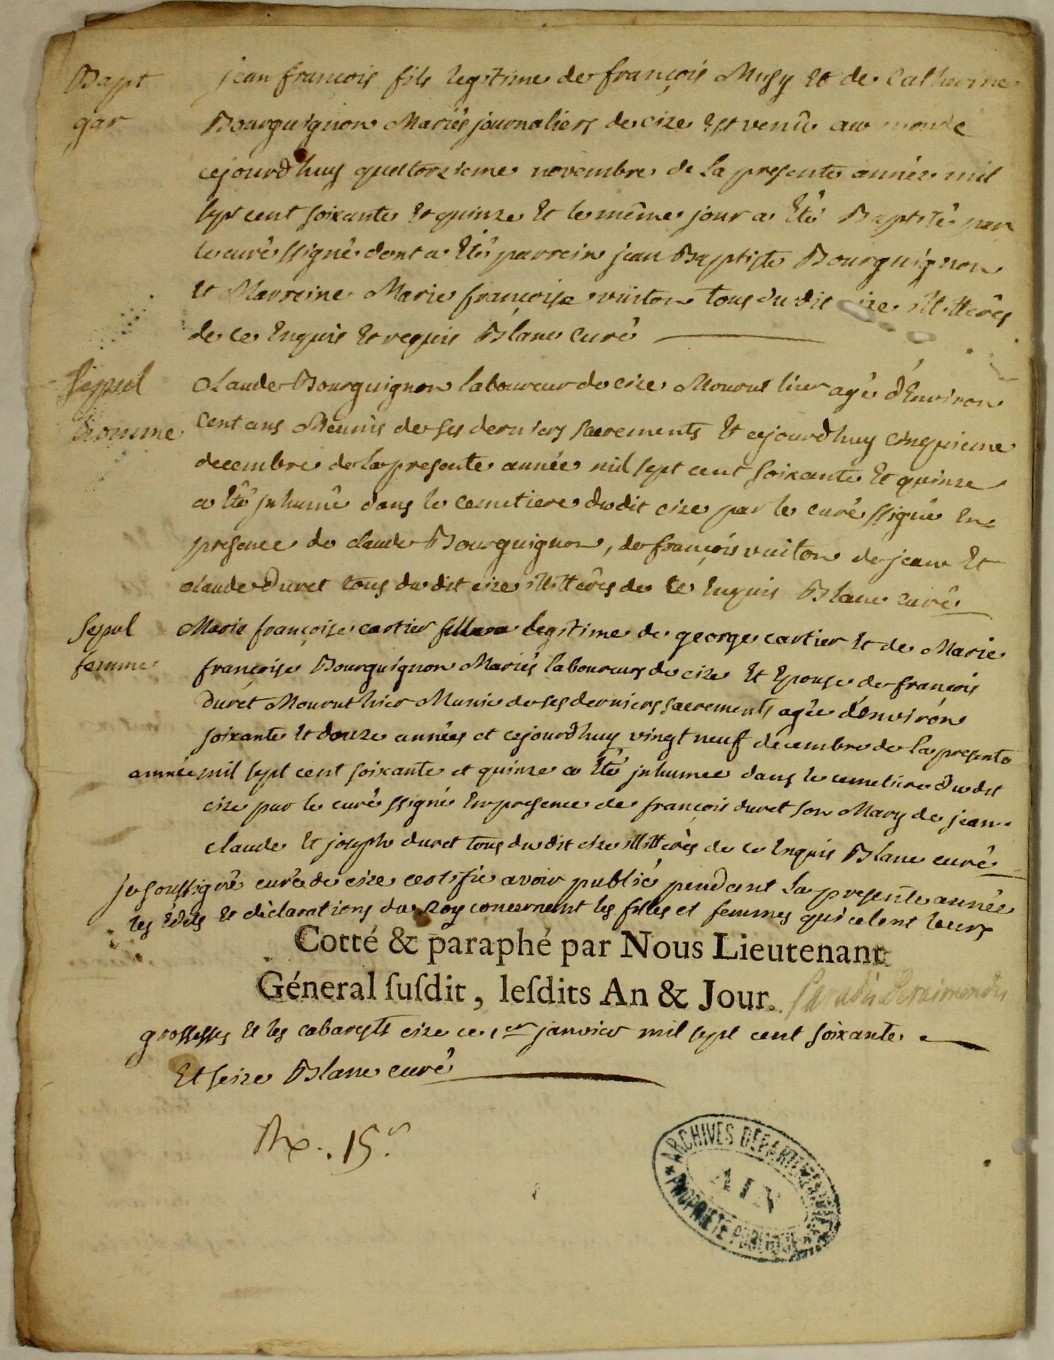 Bapt
gar
jean françois fils legitime de françois Musy Et de Catherine
Bourguignon Mariés journaliers de cize Est venû au monde
cejourd'huy quattorzieme novembre de la presente année mil
sept cent soixante Et quinze Et le même jour a Eté Baptisé par
le curé ssigné dont a Eté parrein jean Baptiste Bourguignon
Et Marreine Marie françoise vuiton tous du dit cize illitterés
de ce Enquis Et requis Blanc curé
Sepul
homme
Claude Bourguignon laboureur de cize Mourut hier agé d'Environ
Cent ans Meunis de ses derniers sacrements Et cejourd'huy cinquieme
decembre de la presente année mil sept cent soixante Et quinze
a Eté jnhumé dans le cemetiere dudit cize par le curé ssigné En
presence de claude Bourguignon, de françois vuiton de jean Et
claude Duret tous du dit cize illitterés de ce Enquis Blanc curé
Sepul
femme
Marie françoise cartier legitime de george cartier Et de Marie
françoise Bourguignon Mariés laboureurs de cize Et Epouse de françois
Duret Mourut hier Munie de ses derniers sacrements agée d'Environ
soixante Et douze années et cejourd'huy vingt neuf decembre de la presente
année mil sept cent soixante et quinze a Eté jnhumee dans le cemetiere dudit
cize par le curé ssigné En presence de françois duret son Mary de jean
claude Et joseph duret tous du dit cize illitterés de ce Enquis Blanc curé
je soussigné curé de cize certifie avoir publié pendent la presente année
les Edits Et declarations du Roy concernent les filles et femmes qui celent leurs
Cotté & paraphé par Nous Lieutenant
Géneral ſuſdit, leſdits An & Jour.
grossesses Et les cabarests cize ce 1er janvier mil sept cent soixante
Et seize Blanc curé
15
ARCHIVES DÉPARTEMENTALES
AIN
PROPRIÉTÉ PUBLIQUE